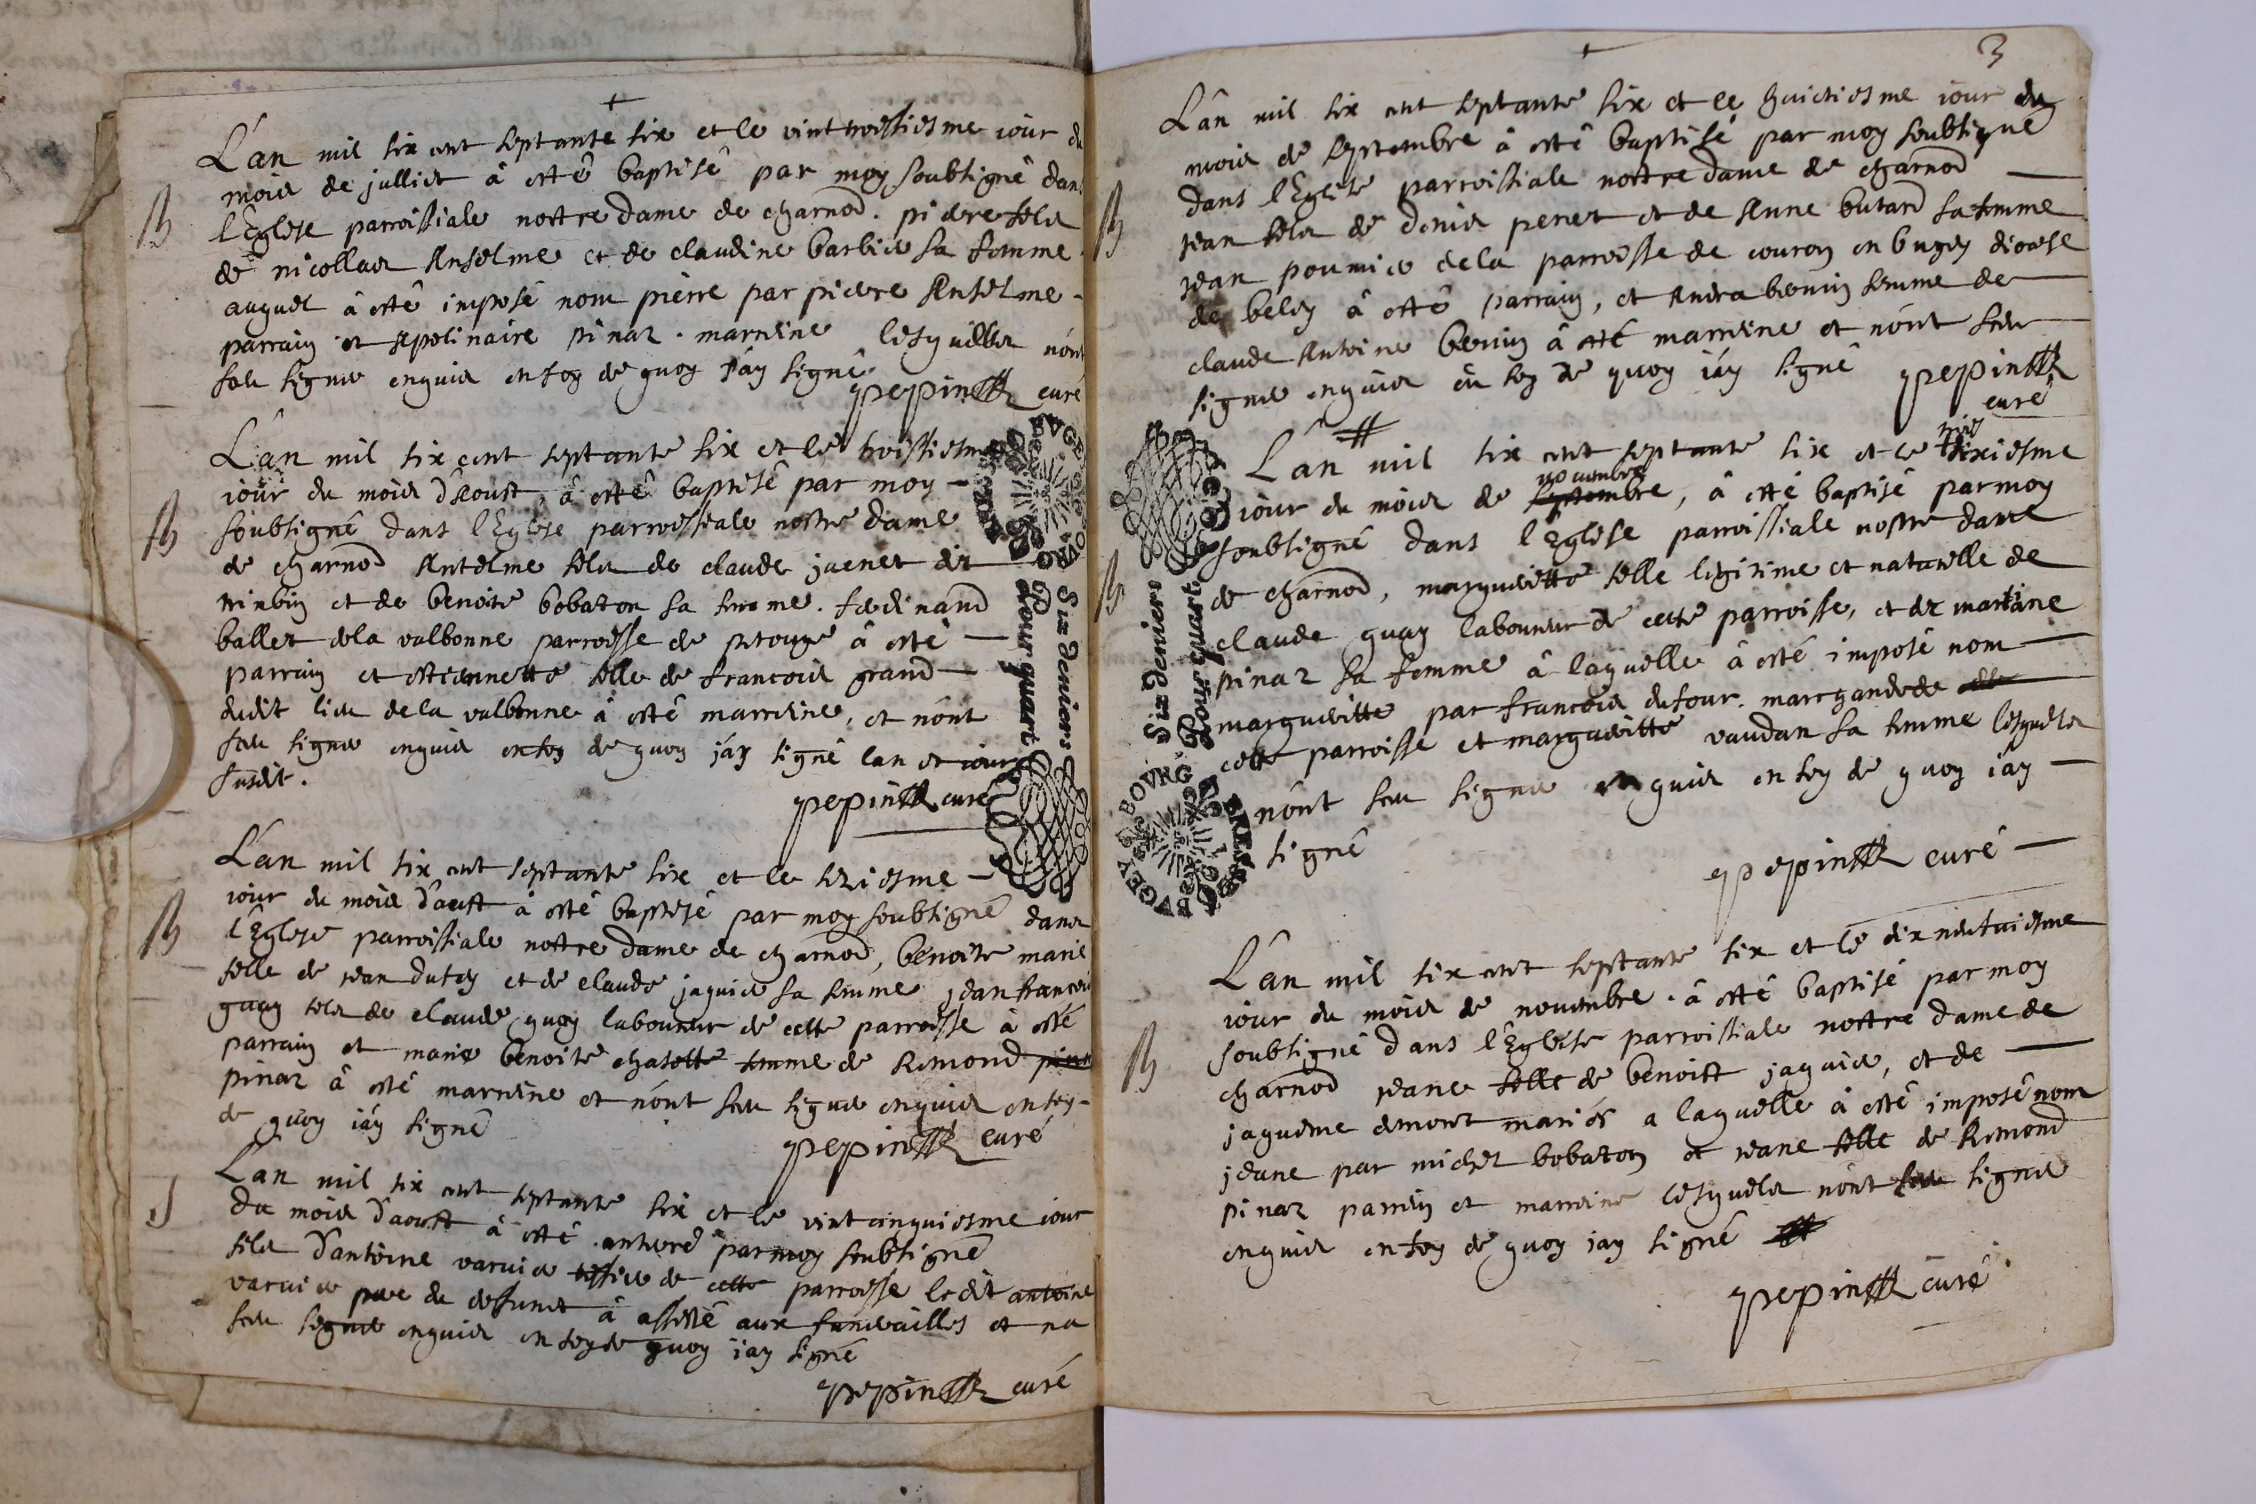 L'an mil six cent septante six et le vint troissiesme iour du
mois de jullier à esté baptisé par moy soubsigné dans
B
l'Eglise parroissiale nostre dame de charnod. pierre fils
de nicollas Anselme et de claudine barbier sa femme
auquel à esté imposé nom pierre par pierre Anselme
parrain et apolinaire pinar. marreine lesquelles nónt
sceu signer enquis en foy de quoy j'ay signé
pepin curé
L'an mil six cent septante six et le troissiesme
iour du mois d'Aoust, à esté baptisé par moy
B
soubsigné dans l'Eglise parroissiale nostre dame
de charnod Antelme fils de claude juenet dit
et de benoite bobaton sa femme. ferdinand
ballet dela valbonne parroisse de perouge à esté
parrain et estiennette fille de francois grand
dudit lieu dela valbonne à esté marreine, et nónt
sceu signer enquis en foy de quoy j'ay signé lan et iour
susdit.
pepin curé
Six deniers
Pour quart
L'an mil six cent septante six et le seziesme
iour du mois d'aoust à esté baptisé par moy soubsigné dans
B
l'Eglise parroissiale nostre dame de charnod, benoite marie
fille de jean dufey et de claude jaquier sa femme jean francois
guay fils de claude guay laboureur de cette parroisse à esté
parrain et marie benoite chatotte femme de Remond
pinar à esté marreine et nónt sceu signer enquis en foy
de quoy j'ay signé
pepin curé
L'an mil six cent septante six et le vint cinquiesme iour
S
du mois d'aoust à esté enterré par moy soubsigné
fils d'antoine varvier tissier de cette parroisse ledit antoine
varvier pere du defunct à assisté aux funerailles et na
sceu signer enquis en foy de quoy j'ay signé
pepin curé
3
L'an mil six cent septante six et le huictiesme iour du
mois de septembre à esté baptisé par moy soubsigné
B
dans l'Eglise parroissiale nostre dame de charnod
jean fils de denis penet et de Anne butard sa femme
jean poumier dela parroisse de couron en bugey diocese
de beley à esté parrain, et Andrea bervin femme de
claude Antoine bervin à esté marreine et nónt sceu
signer enquis en foy de quoy j'ay signé
pepin
curé
L'an mil six cent septante six et le trois sixiesme
iour du mois de septembre novembre, à esté baptisé par moy
soubsigné dans l'Eglise parroissiale nostre dame
B
de charnod, margueritte fille legitime et naturelle de
claude guay laboureur de cette parroisse, et de martine
pinar sa femme à laquelle à esté imposé nom
margueritte par francois dufour. marchand de
cette parroisse et margueritte vaudan sa femme lesquels
nónt sceu signer enquis en foy de quoy j'ay
signé
pepin curé
Six deniers
Pour quart.
BOVRG
BRESSE
BVGEY
L'an mil six cent septante six et le dix neufviesme
iour du mois de novembre. à esté baptisé par moy
soubsigné dans l'Eglise parroissiale nostre dame de
B
charnod jeane fille de benoist jaquier, et de
jaqueme emont mariés a laquelle à esté imposé nom
jeane par michel bobaton et jeane fille de Remond
pinar parrein et marreine lesquels nónt sceu signer
enquis en foy de quoy j'ay signé
pepin curé